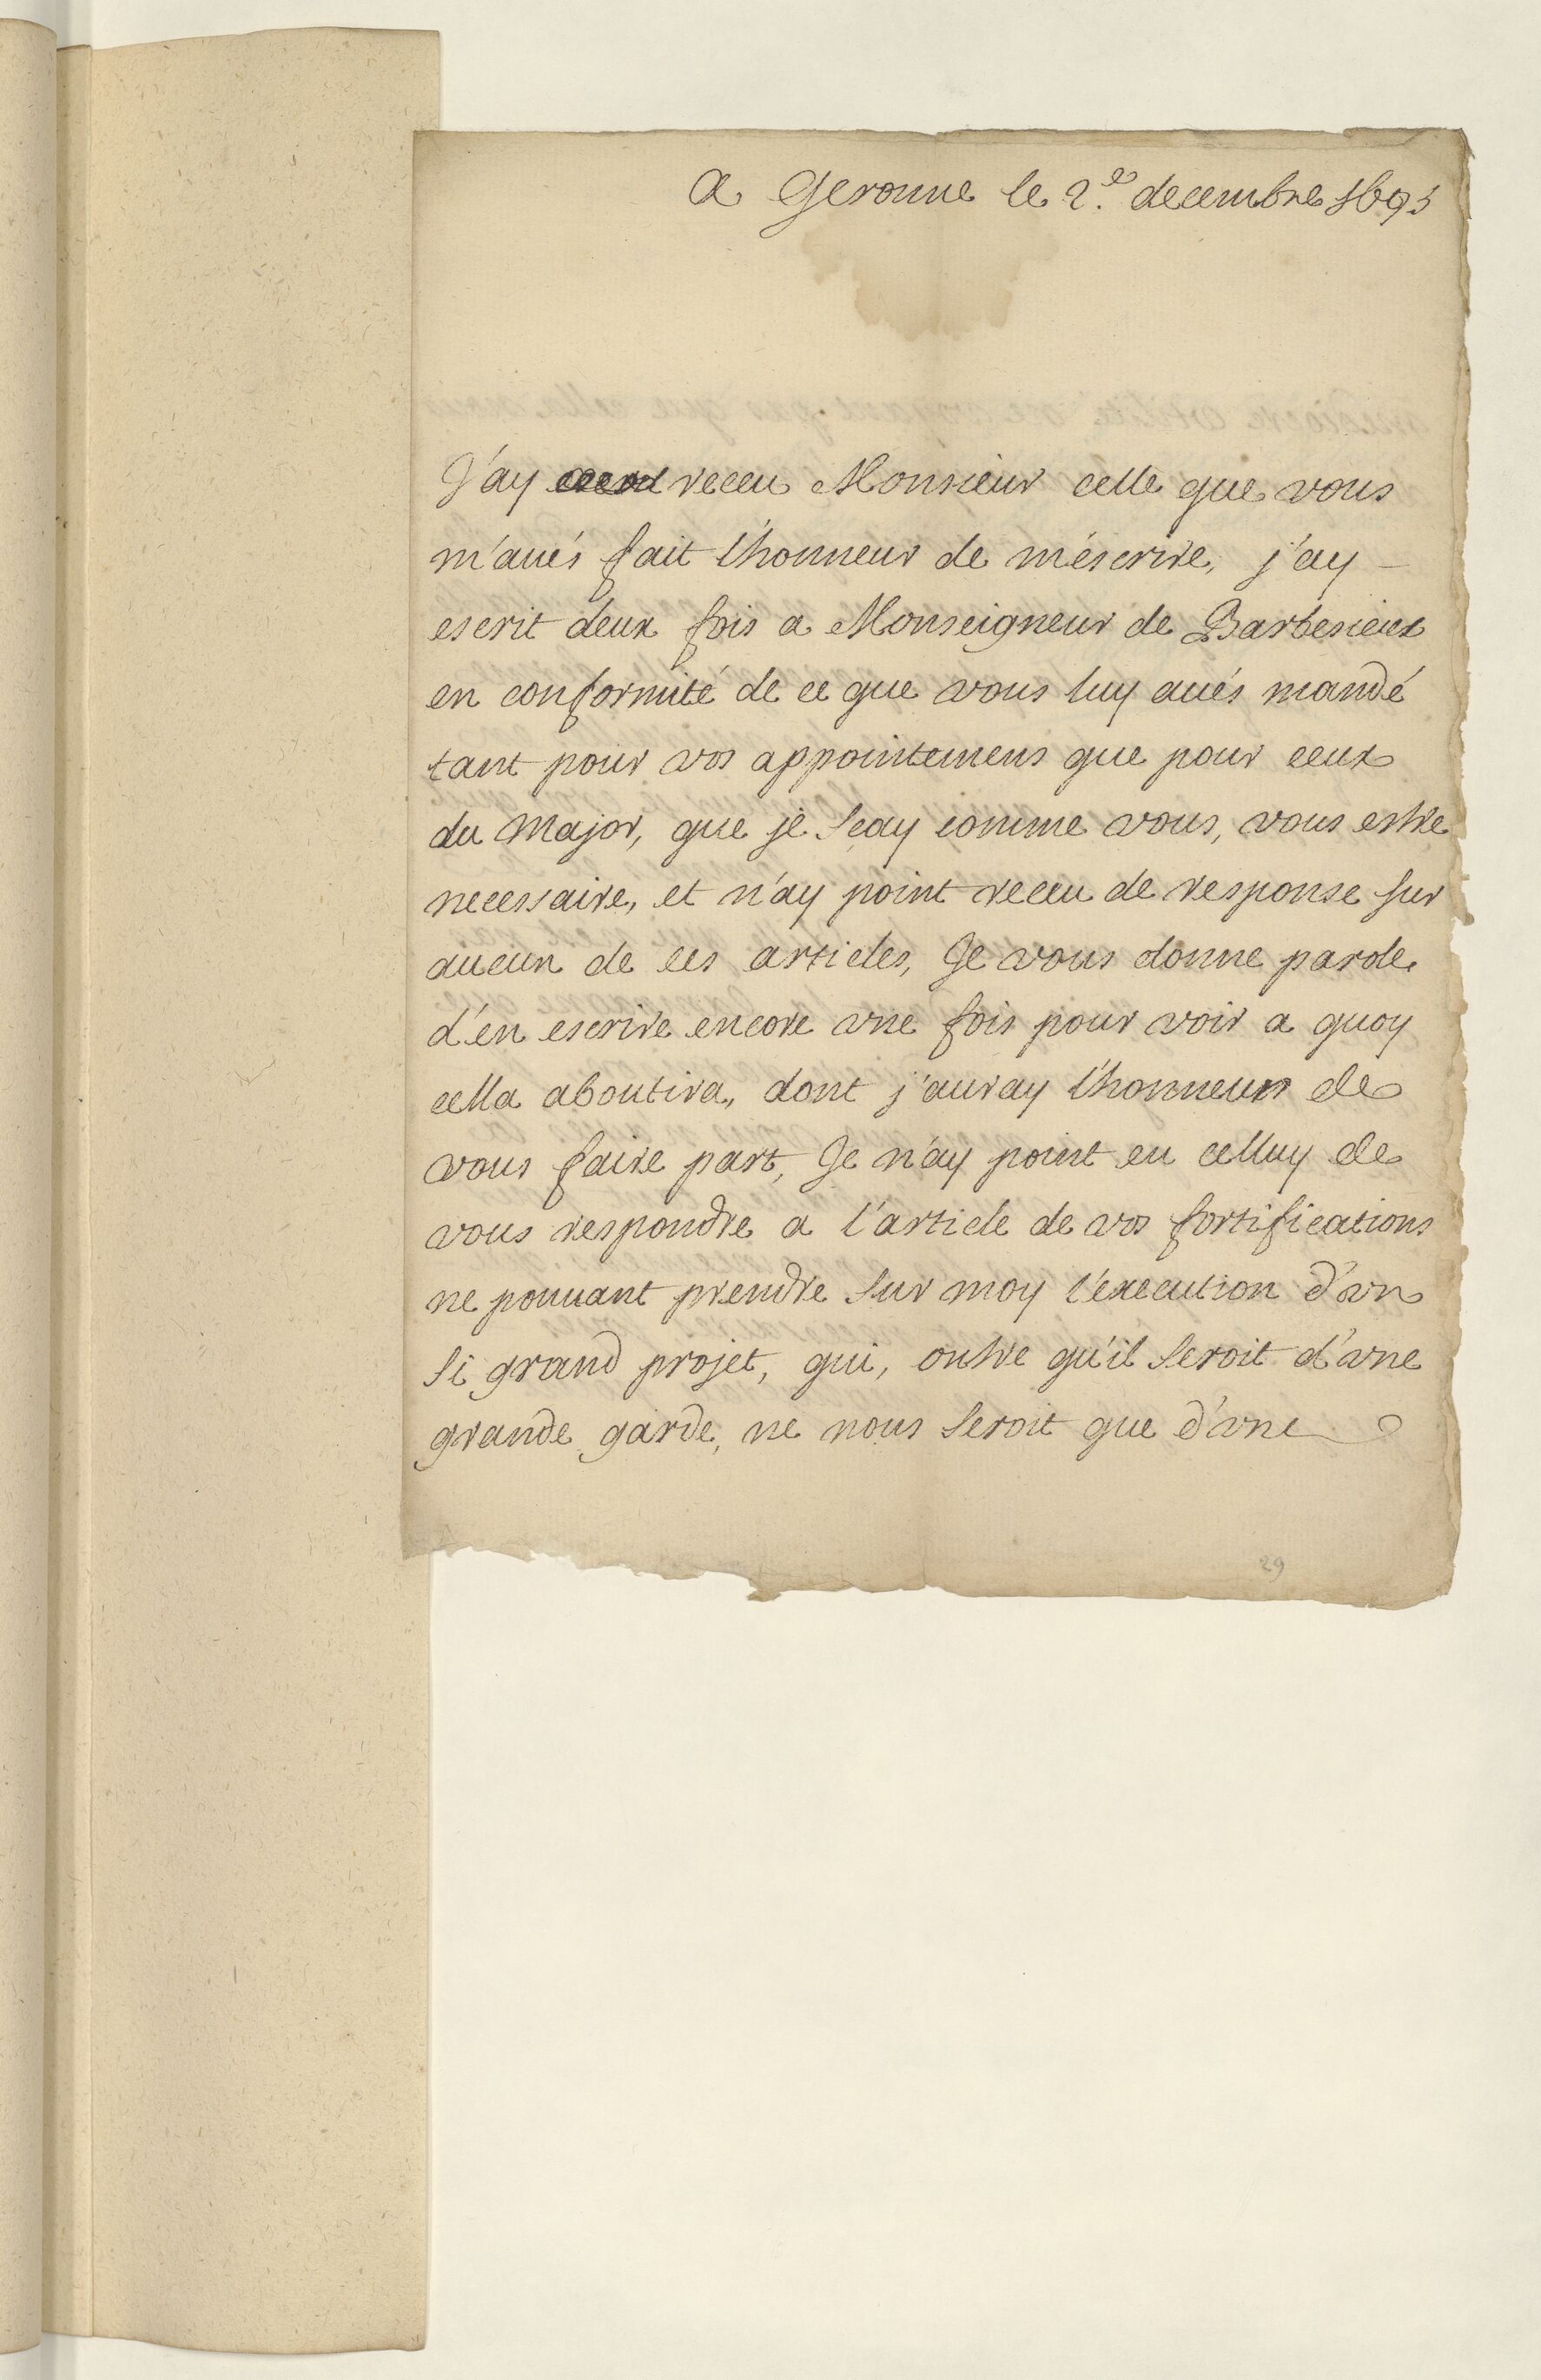 A Geronne le 2.e decembre 1695
J'ay receu Monsieur celle que vous
m'aués fait l'honneur de m'éscrire, j'ay
escrit deux fois a Monseigneur de Barbesieux
en conformité de ce que vous luy aués mandé
tant pour vos appointemens que pour ceux
du Major, que je sçay comme vous, vous estre
necessaire, et n'ay point receu de response sur
aucun de ces articles, Je vous donne parole
d'en escrire encore vne fois pour voir a quoy
cella aboutira, dont j'auray l'honneur de
vous faire part, Je n'ay point eu celluy de
vous respondre a l'article de vos fortifications
ne pouuant prendre sur moy l'execution d'vn
si grand projet, qui, outre qu'il seroit d'vne
grande garde, ne nous seroit que d'vne
29